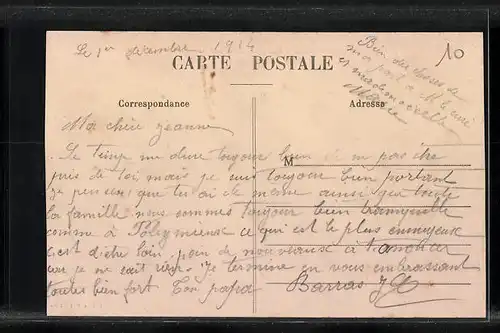 Le 1er décembre 1914
Bien des choses de
ma part a M le curé
et mademoiselle
10
CARTE POSTALE
Correspondance
Adresse
Ma chère Jeanne
Le temp me dure toujour bien de ne pas être
M
près de toi mais je suis toujour bien portant
je pense que tu ai de meme ainsi que toute
la famille nous sommes toujour bien tranquille
comme a ce qui est le plus ennuyeux
c'est d'etre loin pour de nouveaux a
car je ne sait rien. Je termine en vous embrassant
toutes bien fort. Ton papa Barras